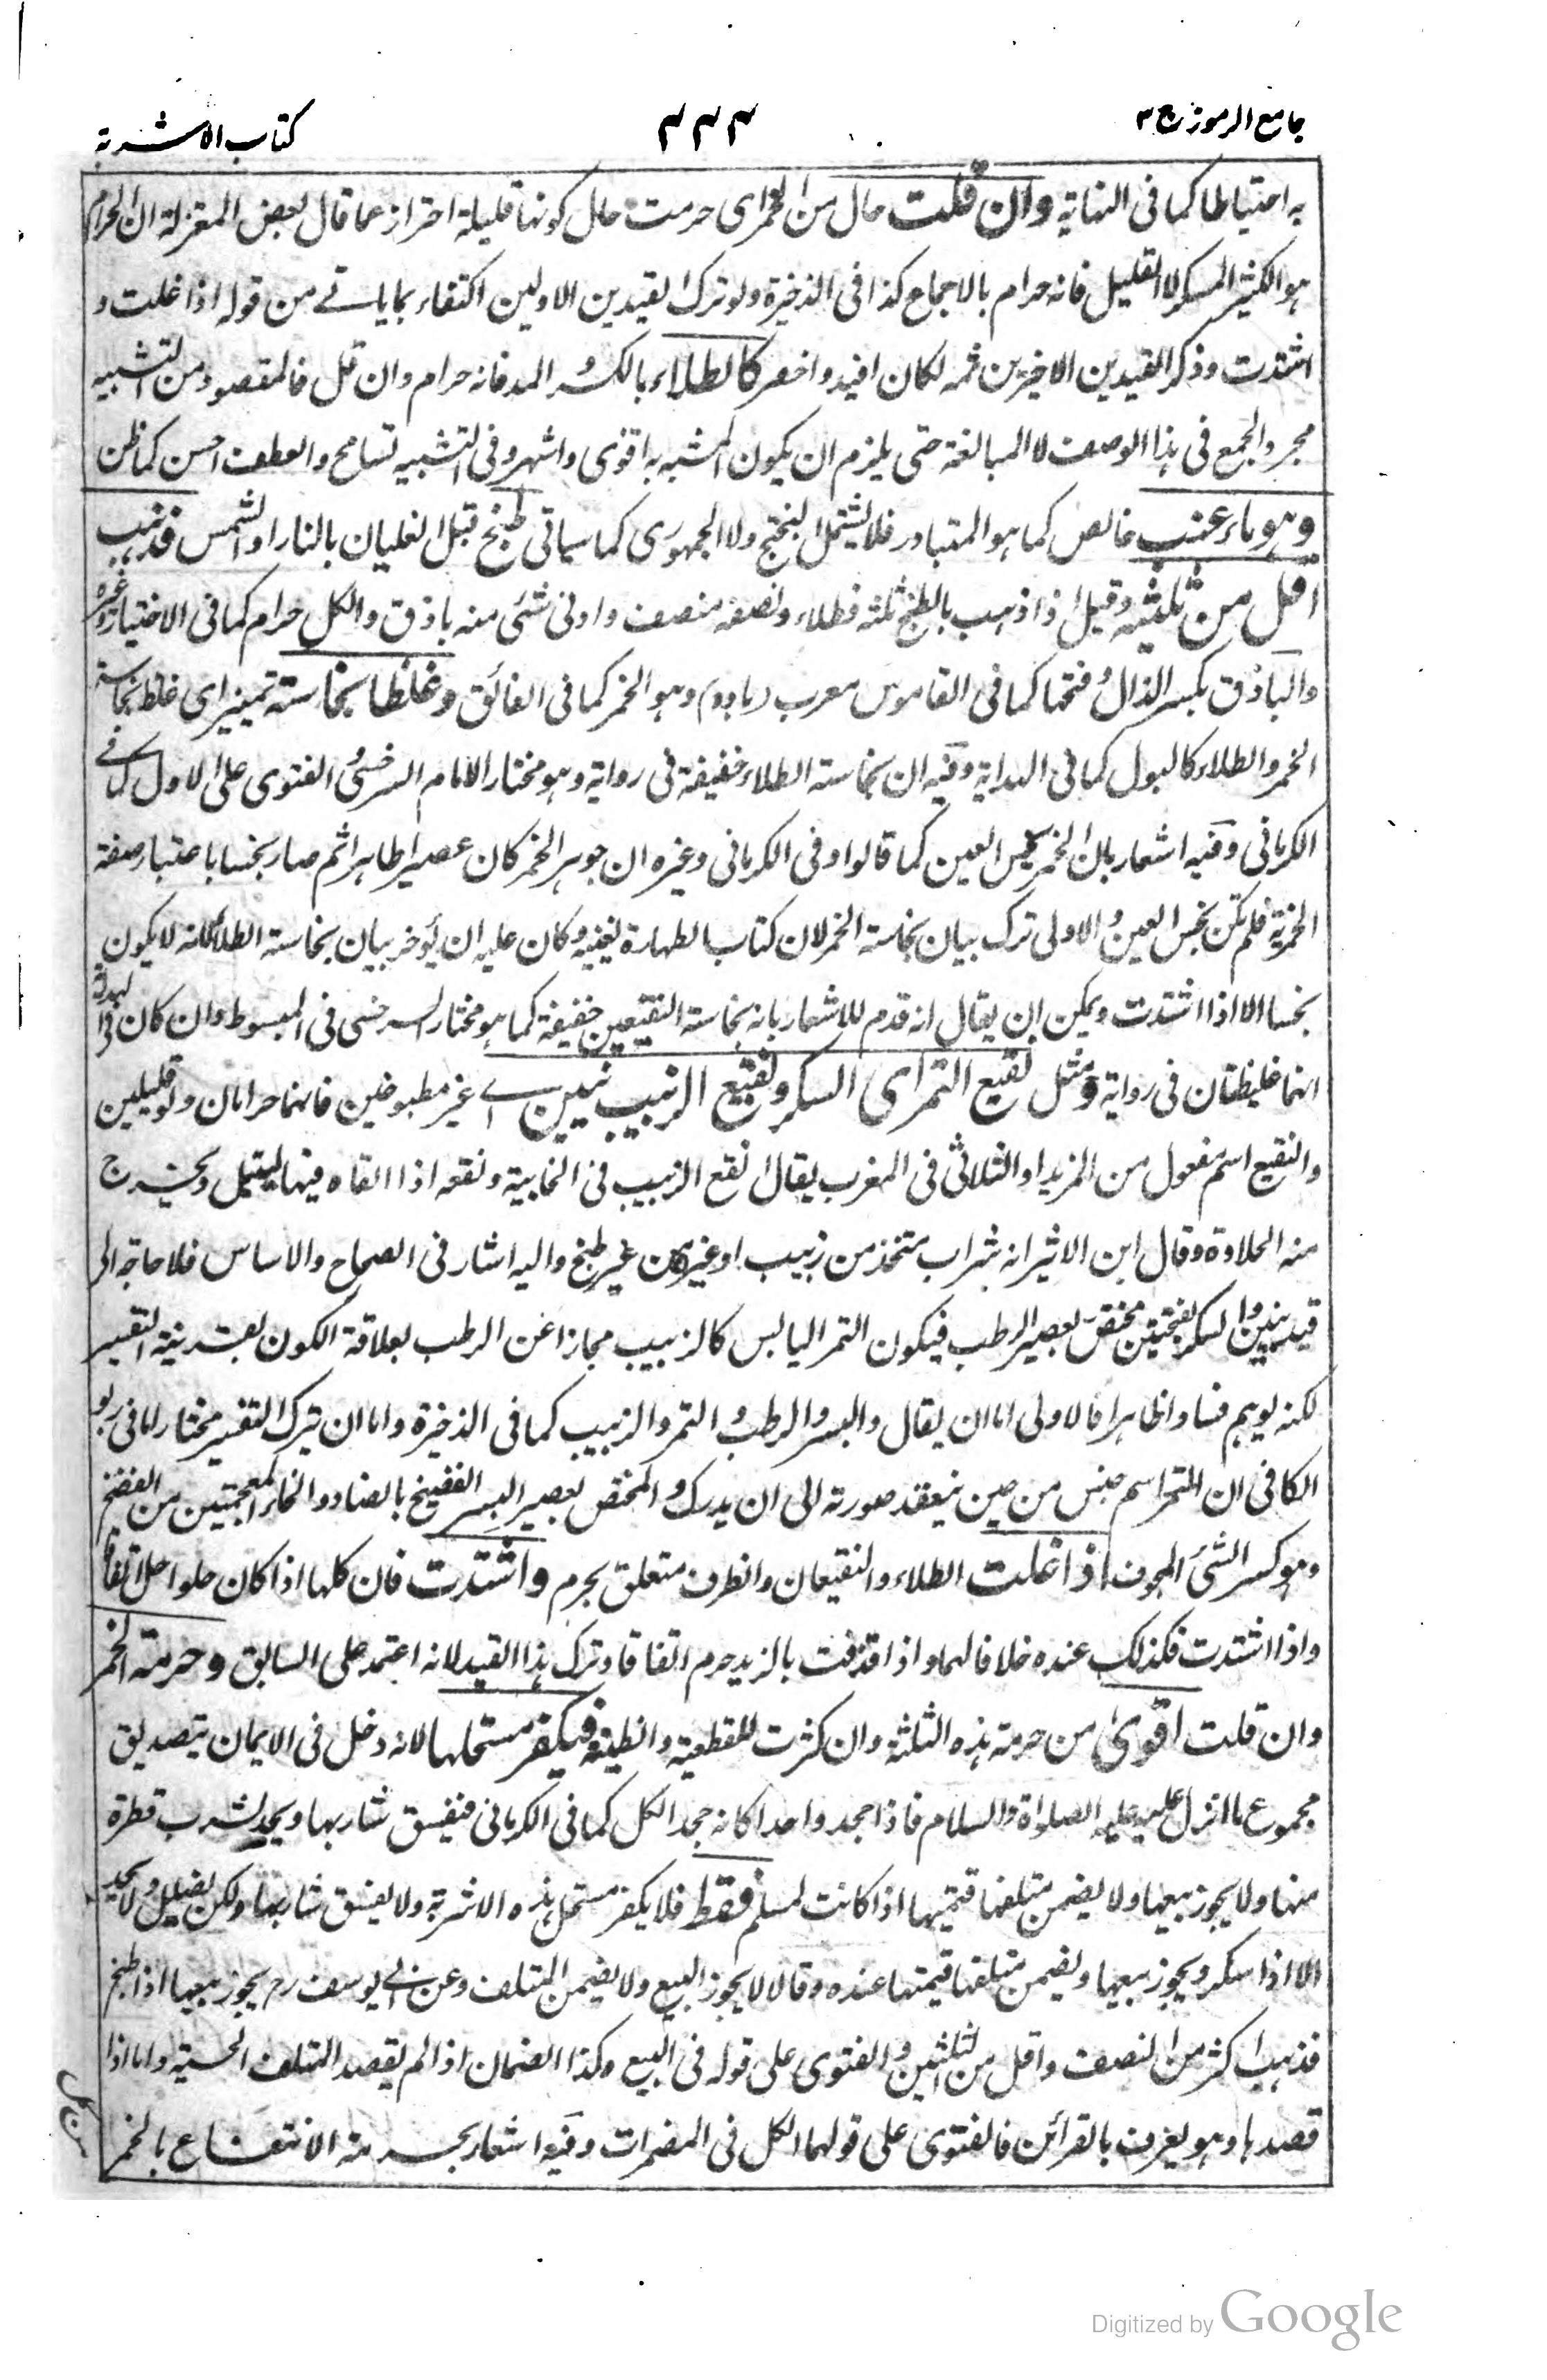 جامع الرموز ج ٣
٣٣٣
كتاب الاشربة
به احتياطا كما فى النهاية وان قلت حال من الخمر اى حرمت حال كونها قليلة احتراز عما قال بعض المعتزلة ان الحرام
هو الكثير المسكر لا القليل فانه حرام بالاجماع كذا فى الذخيرة ولو ترك القيدين الاولين اكتفاء بما ياتى من قوله اذا غلت و
اشتدت وذكر القيدين الاخيرين ثمه لكان افيد واخصر كالطلاء بالكسر والمد فانه حرام وان قل فالمقصود من التشبيه
مجرد الجمع فى هذا الوصف لا المبالغة حتى يلزم ان يكون المشبه به اقوى واشهر وفى التشبيه تسامح والعطف احسن كما ظن
وهو ماء عنب خالص كما هو المتبادر فلا يشتمل البختج ولا الجمهورى كما سياتى طبخ قبل الغليان بالنار او الشمس فذهب
اقل من ثلثيه وقيل اذا ذهب بالطبخ ثلثه فطلاء ونصفه منصف وادنى شئ منه باذق والكل حرام كما فى الاختيار وغيره
والباذق بكسر الذال وفتحها كما فى القاموس معرب (باده) وهو الخمر كما فى الفائق وغلظا نجاسته تمييز اى غلظ نجاسة
الخمر والطلاء كالبول كما فى الهداية وفيه ان نجاسة الطلاء خفيفة فى رواية وهو مختار الامام السرخسى والفتوى على الاول كما فى
الكرمانى وفيه اشعار بان الخمر نجس العين كما قالوا وفى الكرمانى وغيره ان جوهر الخمر كان عصيرا طاهرا ثم صار نجسا باعتبار صفة
الخمرية فلم تكن نجس العين والاولى ترك بيان نجاسة الخمر لان كتاب الطهارة يغنيه وكان عليه ان يؤخر بيان نجاسة الطلاء لانه لا يكون
نجسا الا اذا اشتدت ويمكن ان يقال انه قدم للاشعار بانه نجاسة النقيعين خفيفة كما هو مختار السرخسى فى المبسوط وان كان فى الهداية
انهما غليظتان فى رواية ومثل نقيع التمر اى السكر ونقيع الزبيب نيين اى غير مطبوخين فانهما حرامان ولو قليلين
والنقيع اسم مفعول من المزيد او الثلاثى فى المغرب يقال انقع الزبيب فى الخابية ونقعه اذا القاه فيها ليبتل ويخرج
منه الحلاوة وقال ابن الاثير انه شراب متخذ من زبيب او غيره من غير طبخ واليه اشار فى الصحاح والاساس فلا حاجة الى
قيد نيين والسكر بفتحتين مختص بعصير الرطب فيكون التمر اليابس كالزبيب مجازا عن الرطب بعلاقة الكون بقرينة التفسير
لكنه يوهم فسادا ظاهرا فالاولى اما ان يقال والبسر والرطب والتمر والزبيب كما فى الذخيرة واما ان يترك التفسير مختارا لما فى ربو
الكافى ان التمر اسم جنس من حين ينعقد صورته الى ان يدرك والمختص بعصير البسر الفضيخ بالضاد والخاء المعجمتين من الفضخ
وهو كسر الشئ المجوف اذا غلت الطلاء والنقيعان والظرف متعلق بحرم واشتدت فان كلها اذا كان حلوا حل اتفاقا
واذا اشتدت فكذلك عنده خلافا لهما واذا قذفت بالزبد حرم اتفاقا وترك هذا القيد لانه اعتمد على السابق وحرمة الخمر
وان قلت اقوى من حرمة هذه الثلثة وان كثرت للقطعية والظنية فيكفر مستحلها لانه دخل فى الايمان بتصديق
مجموع ما انزل عليه عليه الصلواة والسلام فاذا جحد واحدا كانه جحد الكل كما فى الكرمانى فيفسق شاربها ويحد لشرب قطرة
منها ولا يجوز بيعها ولا يضمن متلفها قيمتها اذا كانت لمسلم فقط فلا يكفر مستحل هذه الاشربة ولا يفسق شاربها ولكن يضلل ولا يحد
الا اذا سكر ويجوز بيعها ويضمن متلفها قيمتها عنده وقالا لا يجوز البيع ولا يضمن المتلف وعن ابى يوسف رح يجوز بيعها اذا طبخ
فذهب اكثر من النصف واقل من الثلثين والفتوى على قوله فى البيع وكذا الضمان اذا لم يقصد المتلف الحسبة واما اذا
قصدها وهو يعرف بالقرائن فالفتوى على قولهما الكل فى المضمرات وفيه اشعار بحرمة الانتفاع بالخمر
Digitized by Google